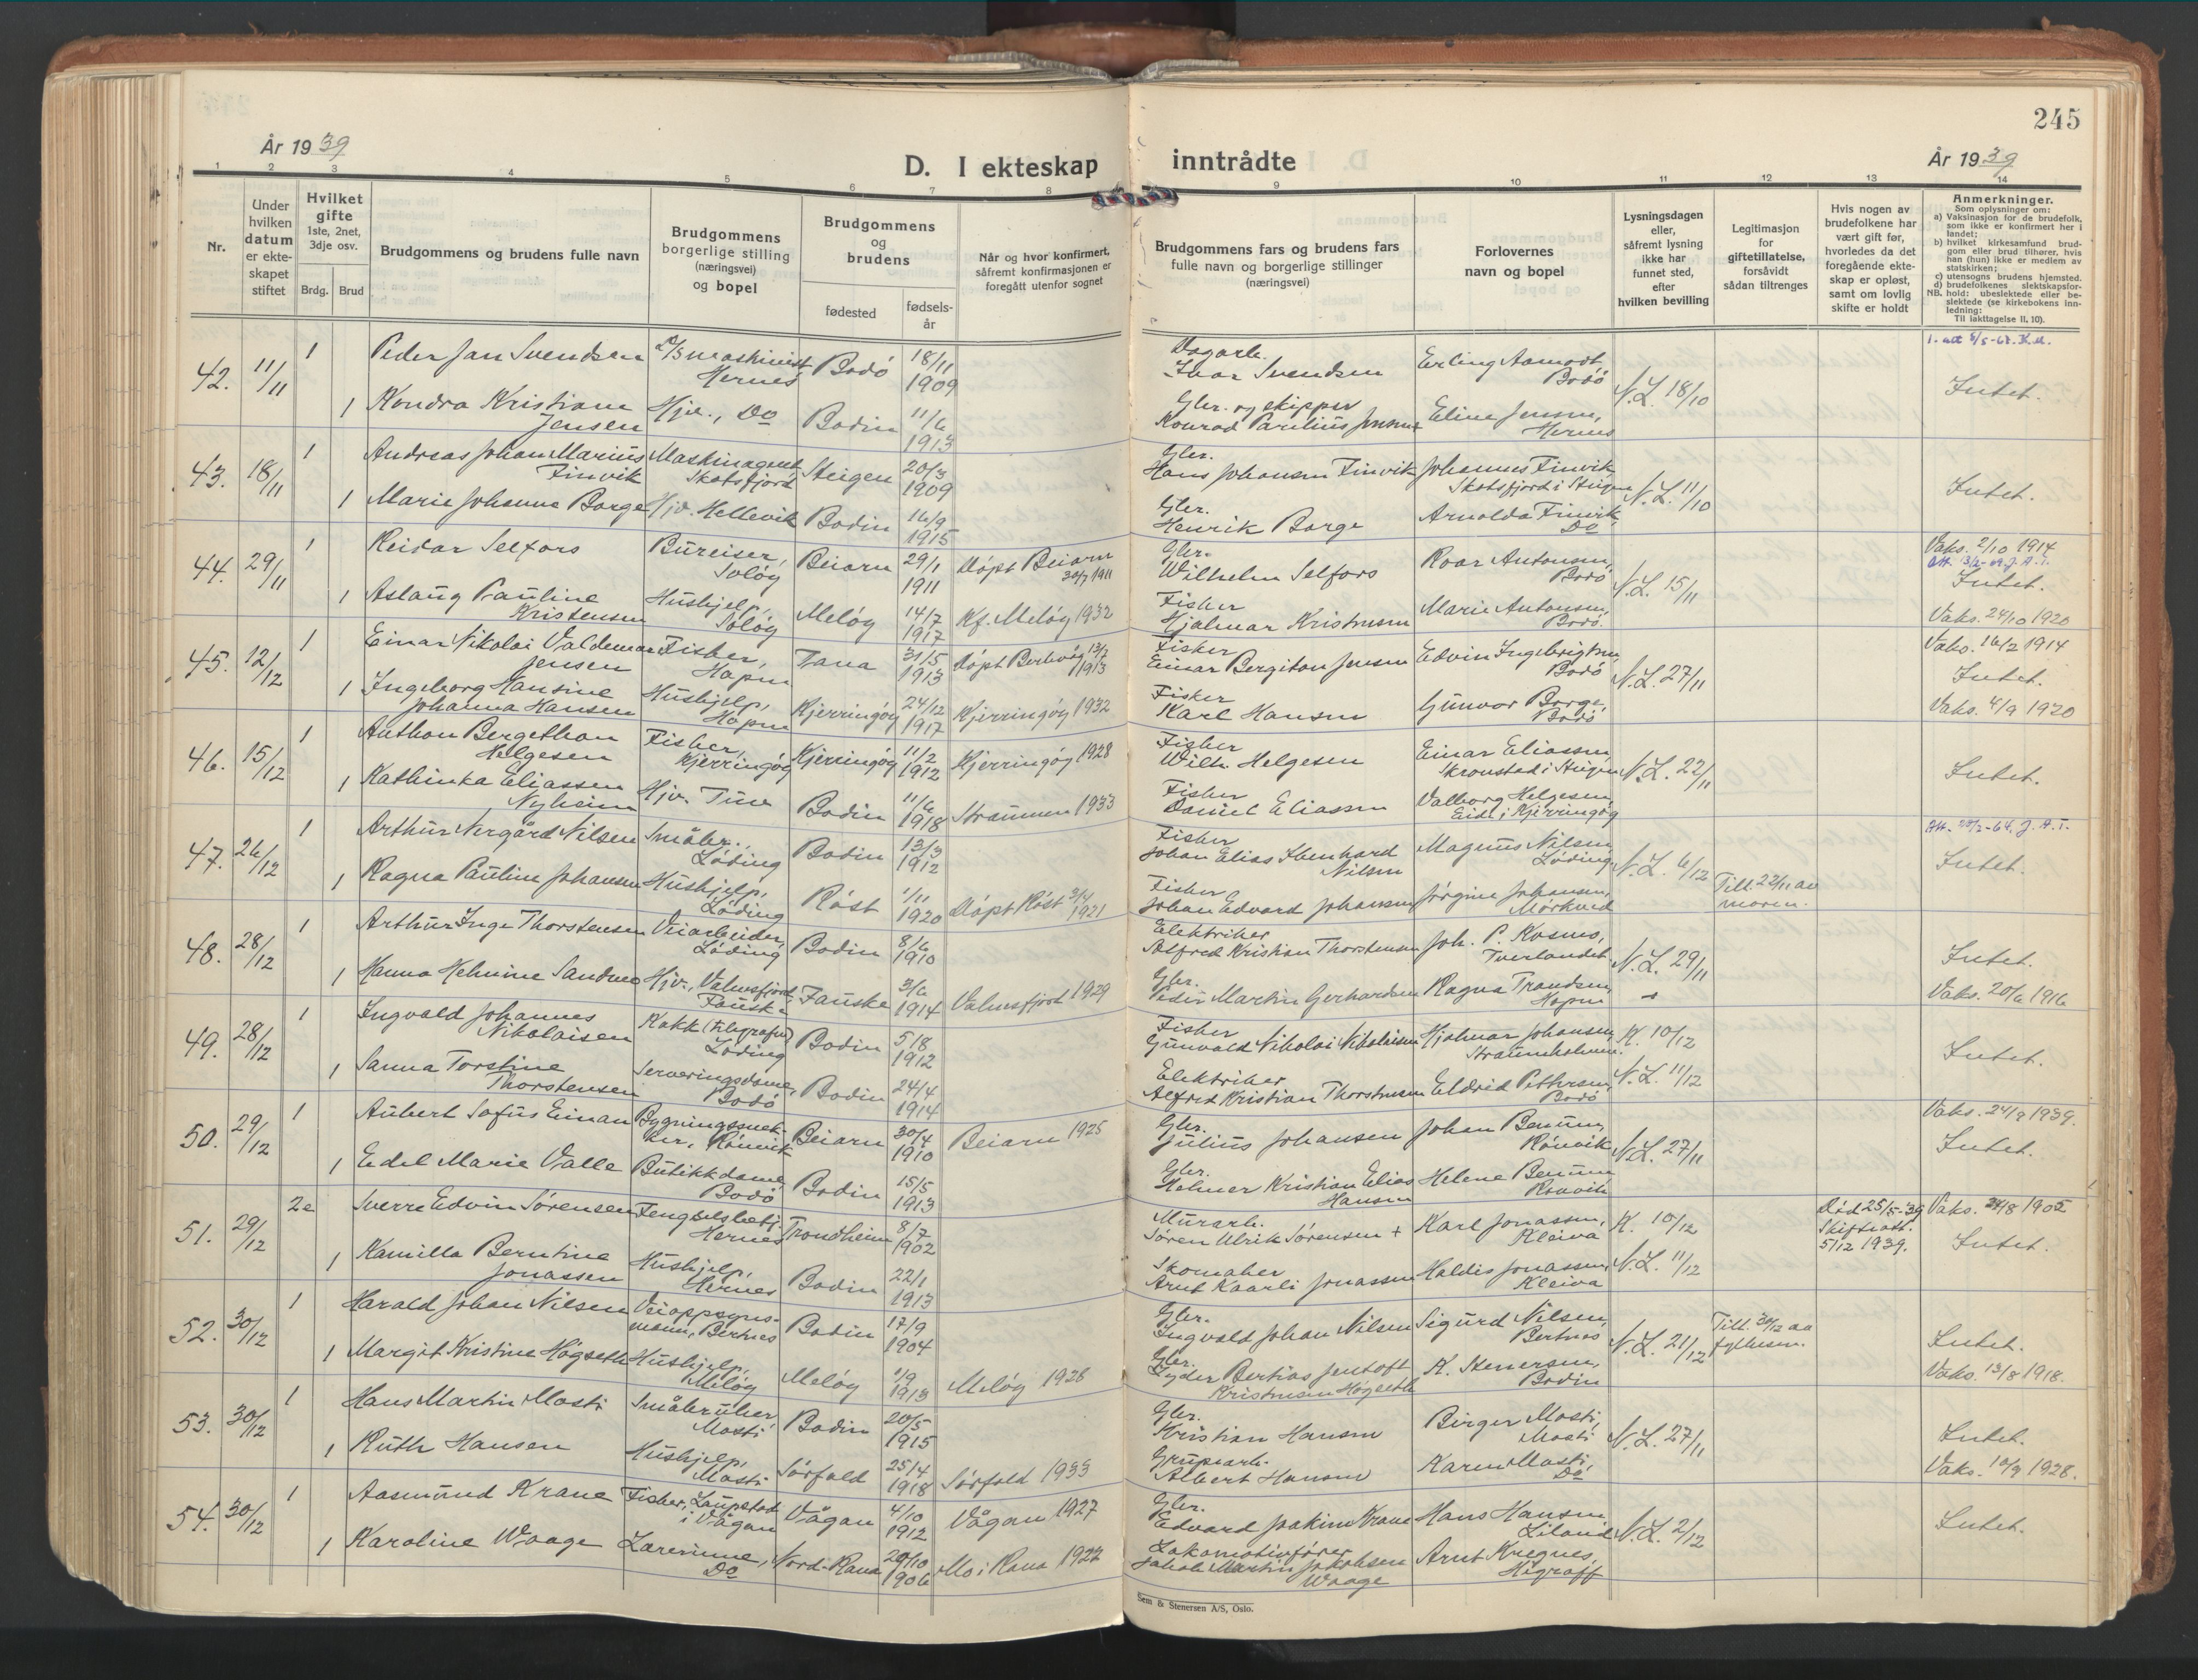 245
År 1939
D. I ekteskap inntrådte
År 1939
1 2 3 4 5 6 7 8 9 10 11 12 13 14
Nr.
Under
hvilken
datum
er ekte-
skapet
stiftet
Hvilket
gifte
1ste, 2net,
3dje osv.
Brdg. Brud
Brudgommens og brudens fulle navn
Brudgommens
borgerlige stilling
(næringsvei)
og bopel
Brudgommens
og
brudens
fødested
fødsels-
år
Når og hvor konfirmert,
såfremt konfirmasjonen er
foregått utenfor sognet
Brudgommens fars og brudens fars
fulle navn og borgerlige stillinger
(næringsvei)
Forlovernes
navn og bopel
Lysningsdagen
eller,
såfremt lysning
ikke har
funnet sted,
efter
hvilken bevilling
Legitimasjon
for
giftetillatelse,
forsåvidt
sådan tiltrenges
Hvis nogen av
brudefolkene har
vært gift før,
hvorledes da det
foregående ekte-
skap er opløst,
samt om lovlig
skifte er holdt
Anmerkninger.
Som oplysninger om:
a) Vaksinasjon for de brudefolk,
som ikke er konfirmert her i
landet;
b) hvilket kirkesamfund brud-
gom eller brud tilhører, hvis
han (hun) ikke er medlem av
statskirken;
c) utensogns brudens hjemsted.
d) brudefolkenes slektskapsfor-
hold: ubeslektede eller be-
slektede (se kirkebokens inn-
ledning:
NB. Til iakttagelse II, 10).
42. 11/11 1 Peder Jan Svendsen maskinist Hernes Bodö 18/11 1909
Dagarb. Ivar Svendsen Erling Aamodt Bodö N.L. 18/10 Intet.
1 Kondra Kristiane Jensen Hjv., Do Bodin 11/6 1913
Gbr. og skipper Konrad Parelius Jensen Eline Jensen, Hernes
43. 18/11 1 Andreas Johan Marius Finvik Maskinagent Skotsfjord Steigen 20/3 1909
Gbr. Hans Johansen Finvik Johannes Finvik Skotsfjord i Steigen N.L. 11/10 Intet.
1 Marie Johanne Borge Hjv. Hellevik Bodin 16/9 1915
Gbr. Henrik Borge Arnolda Finvik, Do
44. 29/11 1 Reidar Selfors Bureiser, Solöy Beiarn 29/1 1911 Döpt Beiarn 30/7 1911
Gbr. Wilhelm Selfors Roar Antonsen, Bodö N.L. 15/11 Vaks. 2/10 1914 Intet.
1 Aslaug Pauline Kristensen Hushjelp, Solöy Melöy 14/7 1917 Kf. Melöy 1932
Fisker Hjalmar Kristensen Marie Antonsen, Bodö. Vaks. 24/10 1920
45. 12/12 1 Einar Nikolai Valdemar Jensen Fisker, Hopen Tana 31/5 1913 Döpt Berlevåg 13/7 1913
Fisker Einar Bergiton Jensen Edvin Ingebrigtsen, Bodö N.L. 27/11 Vaks. 16/2 1914 Intet.
1 Ingeborg Hansine Johanna Hansen Hushjelp, Hopen Kjerringöy 24/12 1917 Kjerringöy 1932
Fisker Karl Hansen Gunvor Borge, Bodö Vaks. 4/9 1920
46. 15/12 1 Anthon Bergethon Helgesen Fisker, Kjerringöy Kjerringöy 11/2 1912 Kjerringöy 1928
Fisker Wilh. Helgesen Einar Eliassen, Skronstad i Steigen N.L. 22/11 Intet.
1 Kathinka Eliassen Nyheim Hjv. Tuv Bodin 11/6 1918 Straumen 1933
Fisker Daniel Eliassen Valborg Helgesen, Eide i Kjerringöy
47. 26/12 1 Arthur Nergård Nilsen Småbr., Löding Bodin 13/3 1912
Fisker Johan Elias Ebenhard Nilsen Magnus Nilsen Löding N.L. 6/12 Intet.
1 Ragna Pauline Johansen Hushjelp, Löding Röst 1/11 1920 Döpt Röst 3/4 1921
Fisker Johan Edvard Johansen Jörgine Johansen, Mörkved Till. 22/11 av moren.
48. 28/12 1 Arthur Inge Thorstensen Veiarbeider, Löding Bodin 8/6 1910
Elektriker Alfred Kristian Thorstensen Joh. P. Kosmo, Tverlandet N.L. 29/11 Intet.
1 Hanna Helmine Sandmo Hjv., Valnesfjord, Fauske Fauske 3/6 1914 Valnesfjord 1929
Gbr. Peder Martin Gerhardsen Ragna Trondsen, Hopen Vaks. 20/6 1916
49. 28/12 1 Ingvald Johannes Nikolaisen Kokk (telegrafen) Löding Bodin 5/8 1912
Fisker Gunvald Nikolai Nikolaisen Hjalmar Johansen, Straumholmen. K. 10/12 Intet.
1 Sanna Torstine Thorstensen Serveringsdame, Bodö Bodin 24/4 1914
Elektriker Alfred Kristian Thorstensen Eldrid Pettersen, Bodö N.L. 11/12
50. 29/12 1 Aubert Sofus Einan Bygningssnekker, Rönvik Beiarn 30/4 1910 Beiarn 1925
Gbr. Julius Johansen Johan Benum, Rönvik N.L. 27/11 Vaks. 24/9 1939. Intet.
1 Eidel Marie Valle Butikkdame, Bodö Bodin 15/5 1913
Gbr. Helmer Kristian Elias Hansen Helene Benum Rönvik
51. 29/12 2e Sverre Edvin Sörensen Fengselsbetj. Hernes Trondheim 8/7 1902
Murarb. Sören Ulrik Sörensen + Karl Jonassen, Kleiva K. 10/12 Död 25/5-39 Skifteatt. 5/12 1939. Vaks. 24/8 1905 Intet.
1 Kamilla Berntine Jonassen Hushjelp, Hernes Bodin 22/1 1913
Skomaker Arnt Kaarli Jonassen Haldis Jonassen, Kleiva N.L. 11/12
52. 30/12 1 Harald Johan Nilsen Veioppsynsmann, Bertnes Bodin 17/9 1904
Gbr. Ingvald Johan Nilsen Sigurd Nilsen, Bertnes N.L. 21/12 Till. 30/12 av fylkesm. Intet.
1 Margit Kristine Högseth Hushjelp, Melöy Melöy 1/9 1913 Melöy 1928
Gbr. Lyder Bertias Jentoft Kristensen Högseth K. Stenersen, Bodin Vaks. 13/8 1918.
53. 30/12 1 Hans Martin Mosti Småbruker, Mosti Bodin 20/5 1915
Gbr. Kristian Hansen Birger Mosti, Mosti N.L. 27/11 Intet.
1 Ruth Hansen Hushjelp, Mosti Sörfold 25/4 1918 Sörfold 1933
Grubearb. Albert Hansen Karen Mosti, Do Vaks. 10/9 1928.
54. 30/12 1 Aasmund Krane Fisker, Laupstad i Vågan Vågan 4/10 1912 Vågan 1927
Gbr. Edvard Joakim Krane Hans Hansen, Liland N.L. 2/12 Intet.
1 Karoline Waage Lærerinne, Do Nord-Rana 20/10 1906 Mo i Rana 1922
Lokomotivförer Jakob Martin Jakobsen Waage Arnt Kregnes, Hegraff
Sem & Stenersen A/S, Oslo.